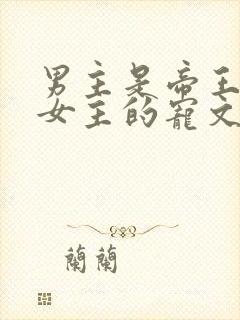 男主是帝王
女主的寵文
蘭蘭